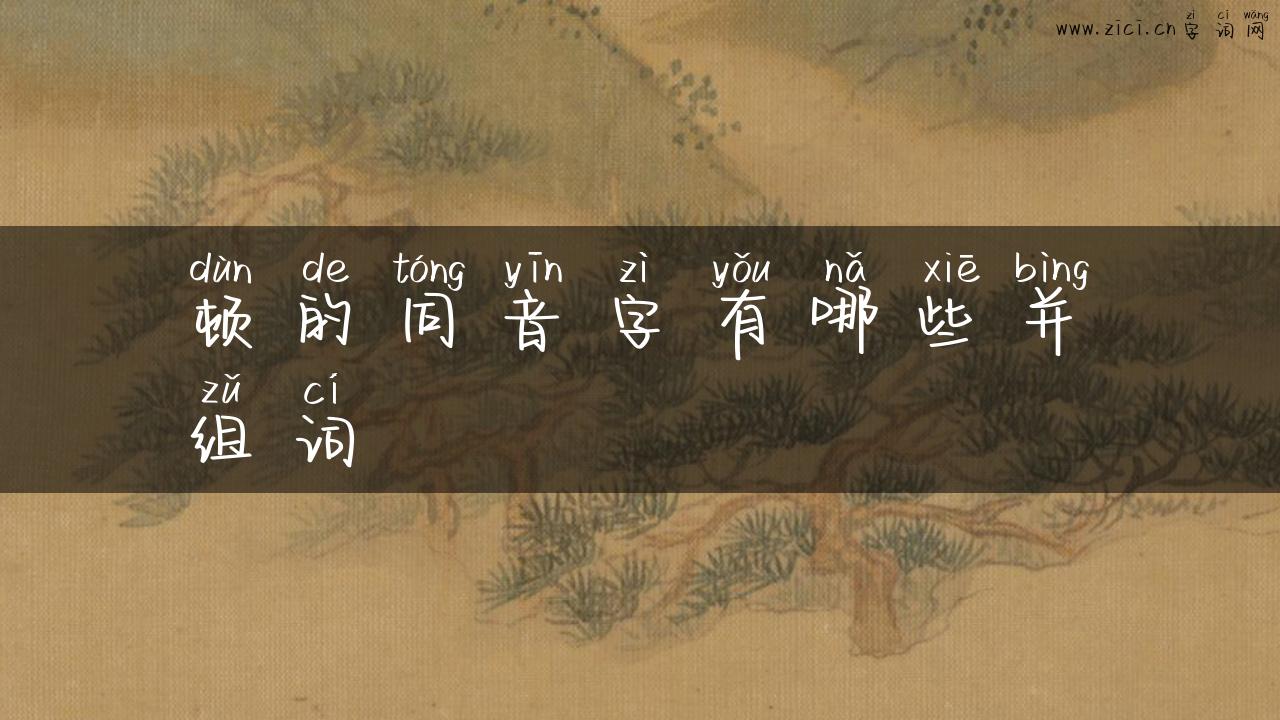 zì cí wǎng
www.zici.cn 字 词 网
dùn de tóng yīn zì yǒu nǎ xiē bìng
顿 的 同 音 字 有 哪 些 并
zǔ cí
组 词